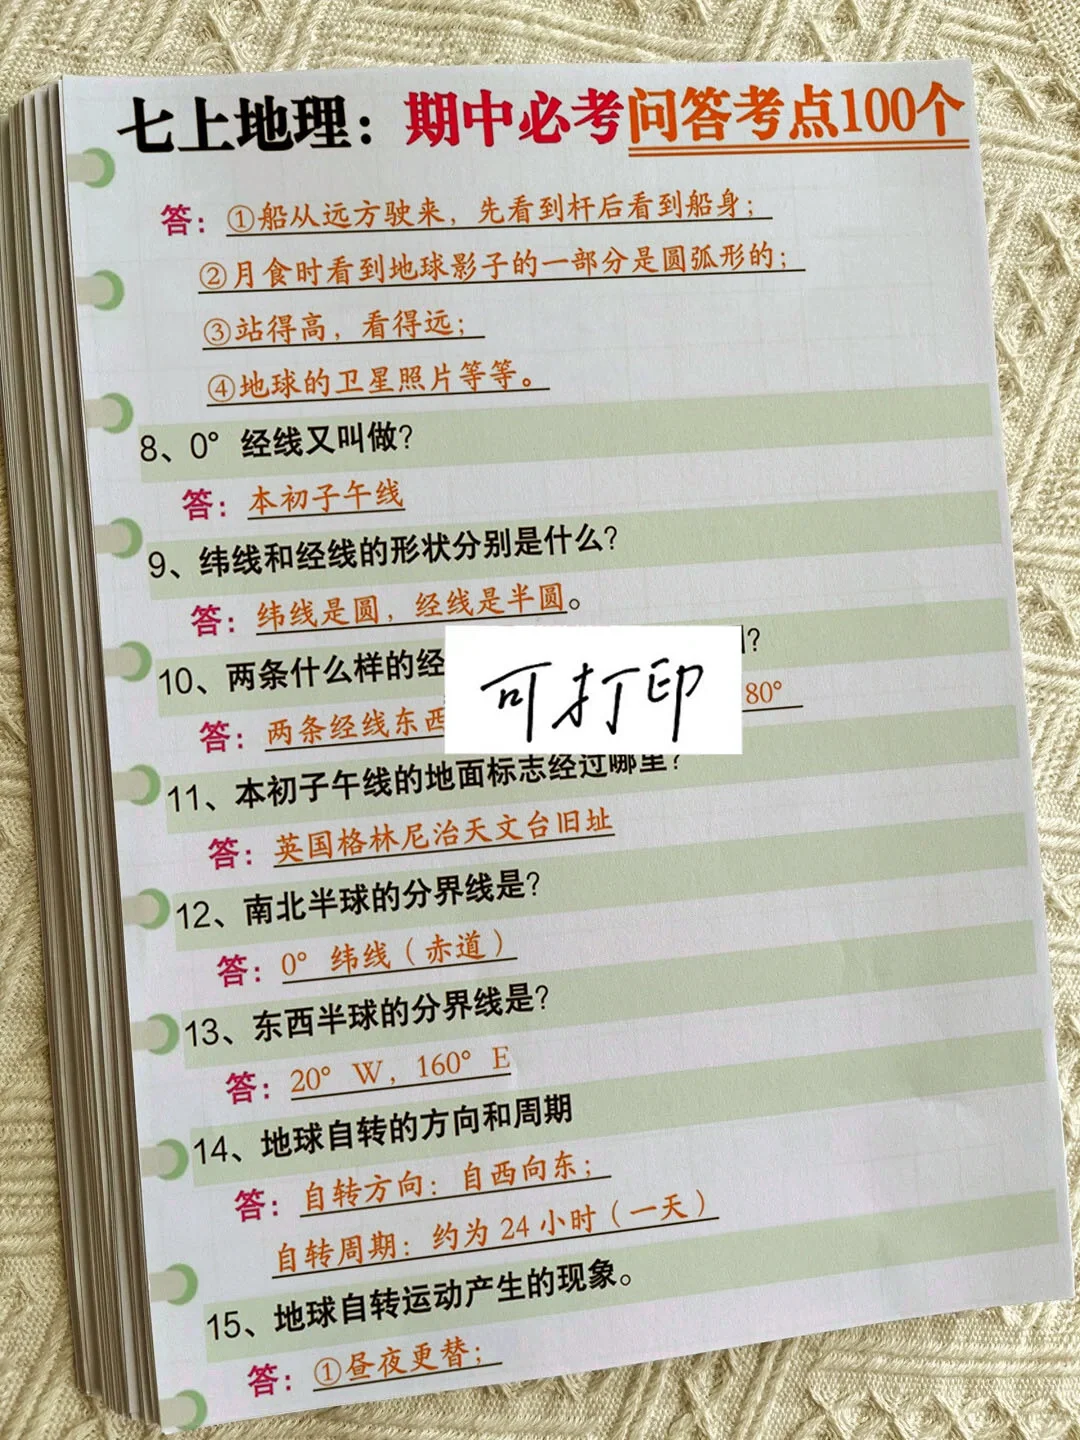 七上地理：期中必考问答考点100个
答：①船从远方驶来，先看到杆后看到船身；
②月食时看到地球影子的一部分是圆弧形的；
③站得高，看得远；
④地球的卫星照片等等。
8、0° 经线又叫做？
答：本初子午线
9、纬线和经线的形状分别是什么？
答：纬线是圆，经线是半圆。
10、两条什么样的经 ？
答：两条经线东西 80°
可打印
11、本初子午线的地面标志经过哪里？
答：英国格林尼治天文台旧址
12、南北半球的分界线是？
答：0° 纬线（赤道）
13、东西半球的分界线是？
答：20° W，160° E
14、地球自转的方向和周期
答：自转方向：自西向东；
自转周期：约为 24 小时（一天）
15、地球自转运动产生的现象。
答：①昼夜更替；